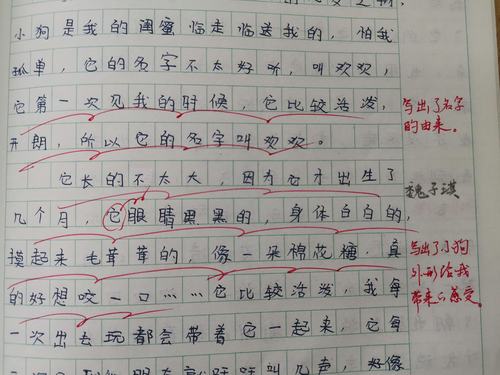 小狗是我的闺蜜临走临送我的，怕我
孤单，它的名字不太好听，叫欢欢，
它第一次见我的时候，它比较活泼，
开朗，所以它的名字叫欢欢。
写出了名字
的由来。
它长的不太大，因为它才出生了
几个月，它眼睛黑黑的，身体白白的，
魏子淇
摸起来毛茸茸的，像一朵棉花糖，真
的好想咬一口……它比较活泼，我每
一次出去玩都会带着它一起来，它每
写出了小狗
外形给我
带来的感受。
叫几声，好像